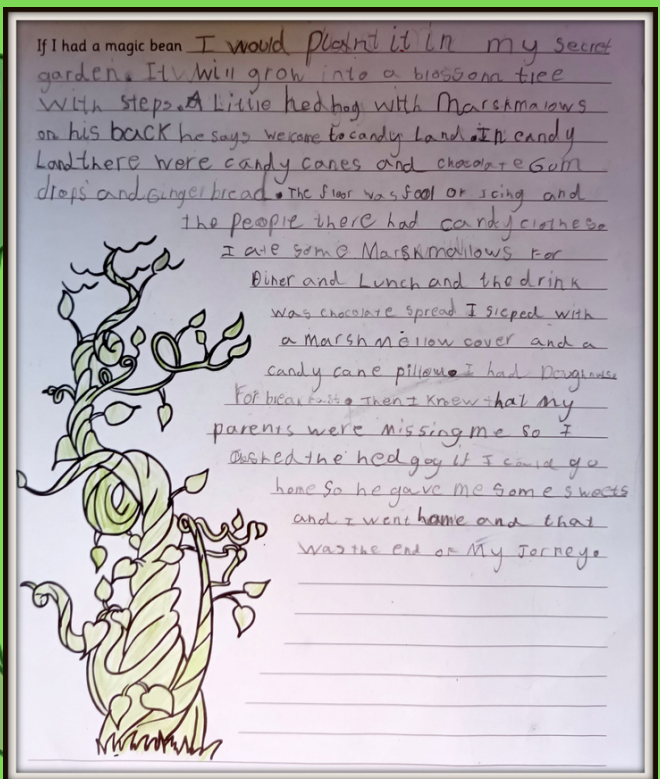 If I had a magic bean I would plant it in my secret
garden. It will grow into a blossom tree
with steps. A Little hedhog with Marshmalows
on his back he says welcome to candy Land. In candy
Land there were candy canes and chocolate Gum
drops and Gingerbread. The floor was fool of icing and
the people there had candy clothes.
I ate some Marshmallows For
Diner and Lunch and the drink
was chocolate spread I sleped with
a marshmellow cover and a
candy cane pillow. I had Doughnuse
For breakfast. Then I knew that my
parents were missing me so I
asked the hedgog if I could go
home So he gave me some sweets
and I went home and that
was the end of My Jorney.